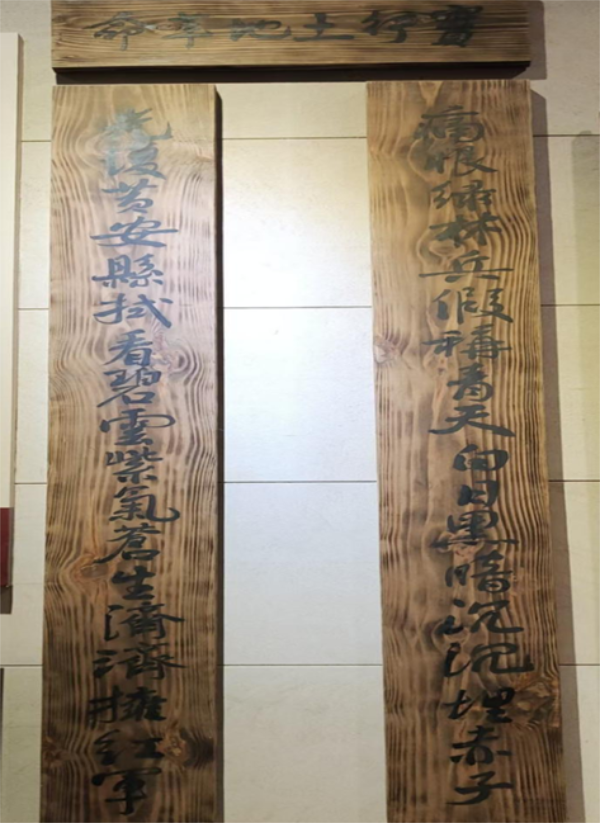 實行土地革命
痛恨綠林兵假稱青天白日黑暗沉沉埋赤子
光復黄安縣拭看碧雲紫氣蒼生濟濟擁紅軍